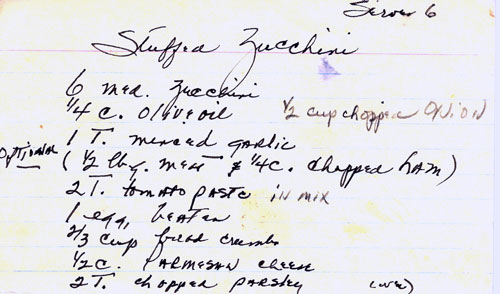 Serves 6
Stuffed Zucchini
6 med. Zucchini
1/4 c. Olive oil 1/2 cup chopped ONION
1 T. minced garlic
Optional (1/2 lb g. meat & 1/4 c. chopped ham)
2 T. tomato paste in mix
1 egg, beaten
2/3 cup bread crumbs
1/2 c. Parmesan cheese
2 T. chopped parsley